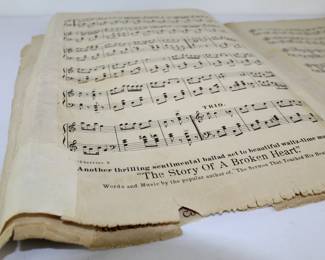 TRIO.
Another thrilling sentimental ballad set to beautiful waltz-time
"The Story Of A Broken Heart."
Words and Music by the popular author of, "The Sermon That Touched His